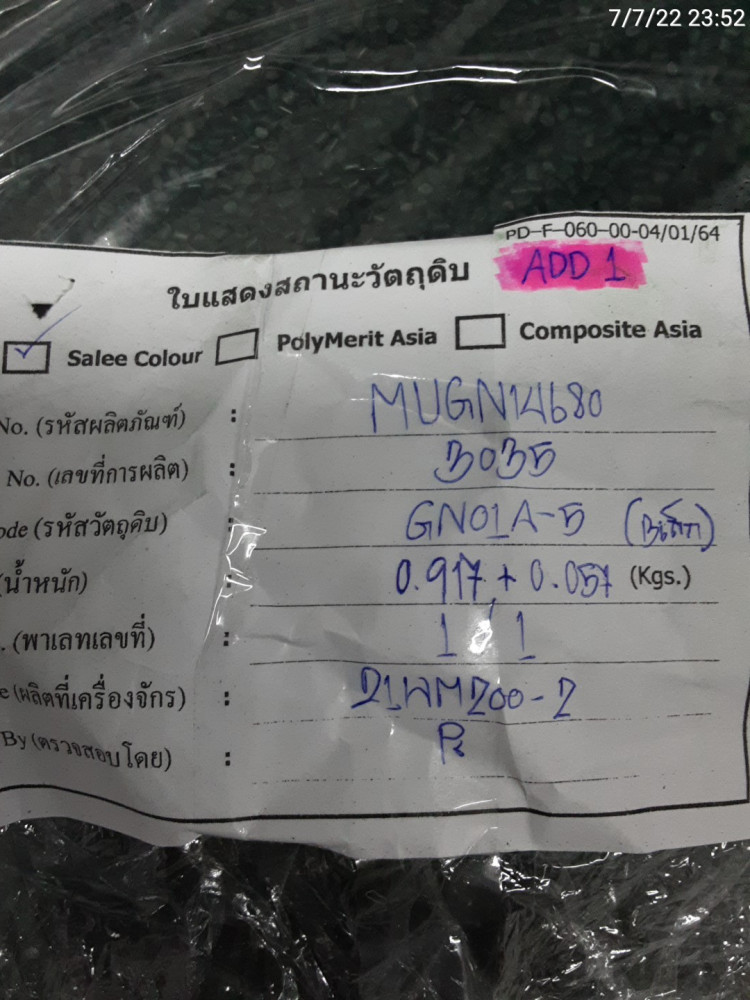 7/7/22 23:52
PD-F-060-00-04/01/64
ใบแสดงสถานะวัตถุดิบ ADD 1
Salee Colour PolyMerit Asia Composite Asia
No. (รหัสผลิตภัณฑ์) : MUGN14680
No. (เลขที่การผลิต) : 3035
ode (รหัสวัตถุดิบ) : GN01A-5
(น้ำหนัก) : 0.917 + 0.057 (Kgs.)
. (พาเลทเลขที่) : 1 / 1
e (ผลิตที่เครื่องจักร) :
By (ตรวจสอบโดย) :